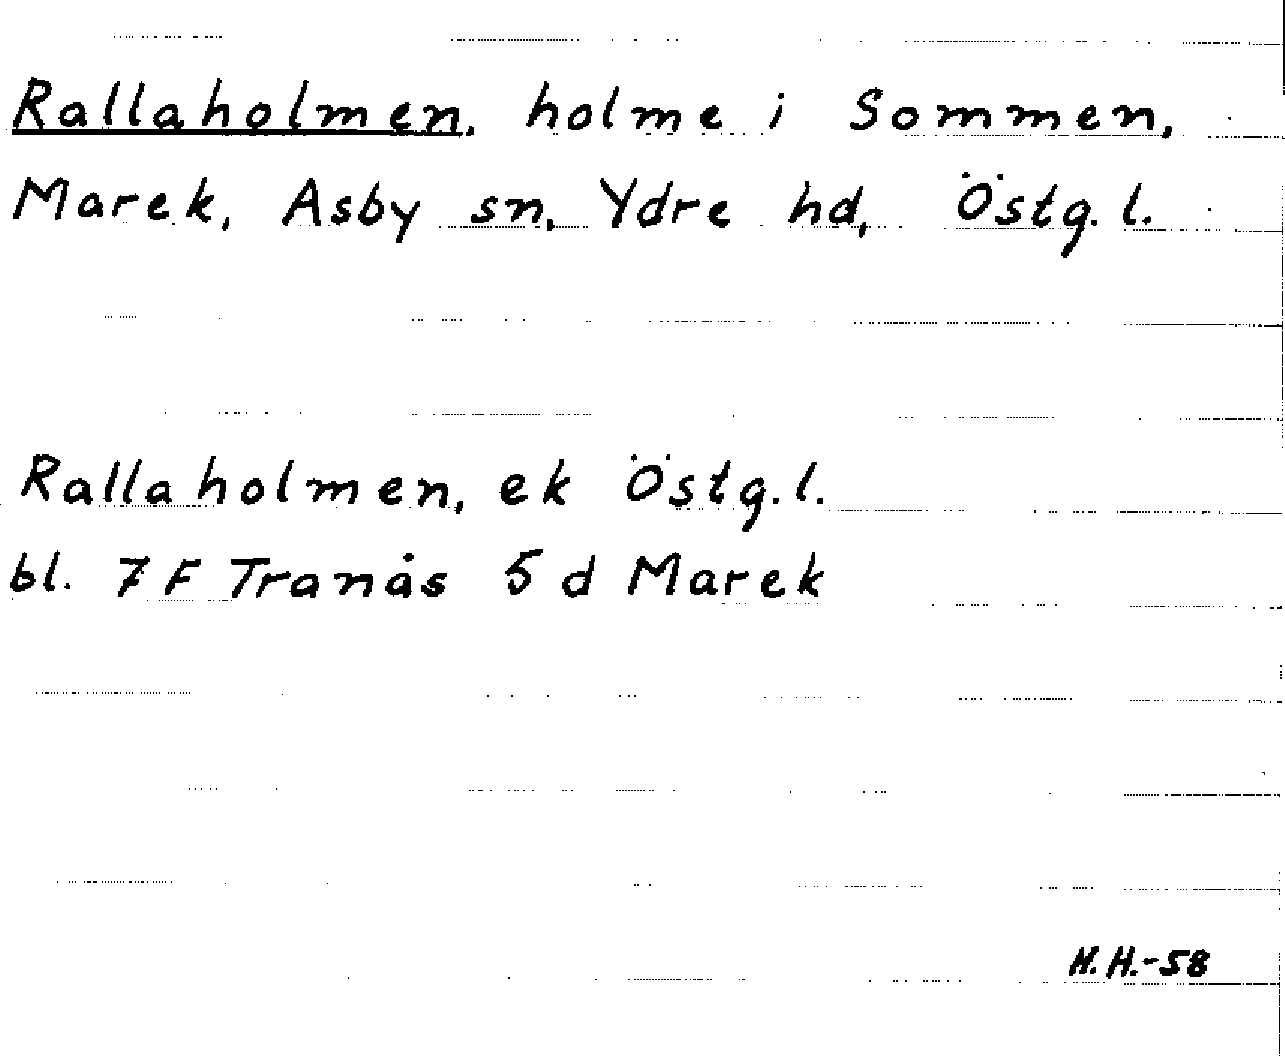 Rallaholmen, holme i Sommen,
Marek, Asby sn, Ydre hd, Östg. l.
Rallaholmen, ek Östg. l.
bl. 7 F Tranås 5 d Marek
H. H.-58